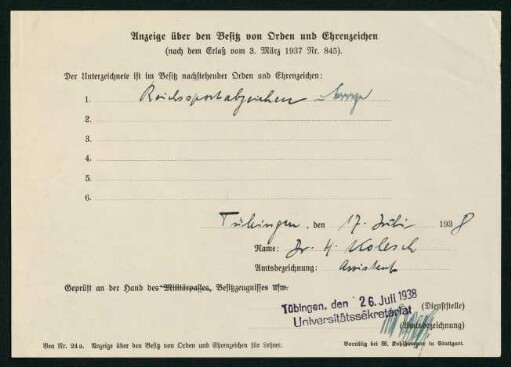 Anzeige über den Besitz von Orden und Ehrenzeichen
(nach dem Erlaß vom 3. März 1937 Nr. 845).
Der Unterzeichnete ist im Besitz nachstehender Orden und Ehrenzeichen:
1. Reichssportabzeichen
2.
3.
4.
5.
6.
Tübingen, den 17. Juli 1938
Name: Dr. H. Kolesch
Amtsbezeichnung: Assistent
Geprüft an der Hand des Militärpasses, Besitzzeugnisses usw.
Tübingen, den 26. Juli 1938 (Dienststelle)
Universitätssekretariat
(Amtsbezeichnung)
Ben Nr. 24a. Anzeige über den Besitz von Orden und Ehrenzeichen für Lehrer. Vorrätig bei W. Kohlhammer in Stuttgart.